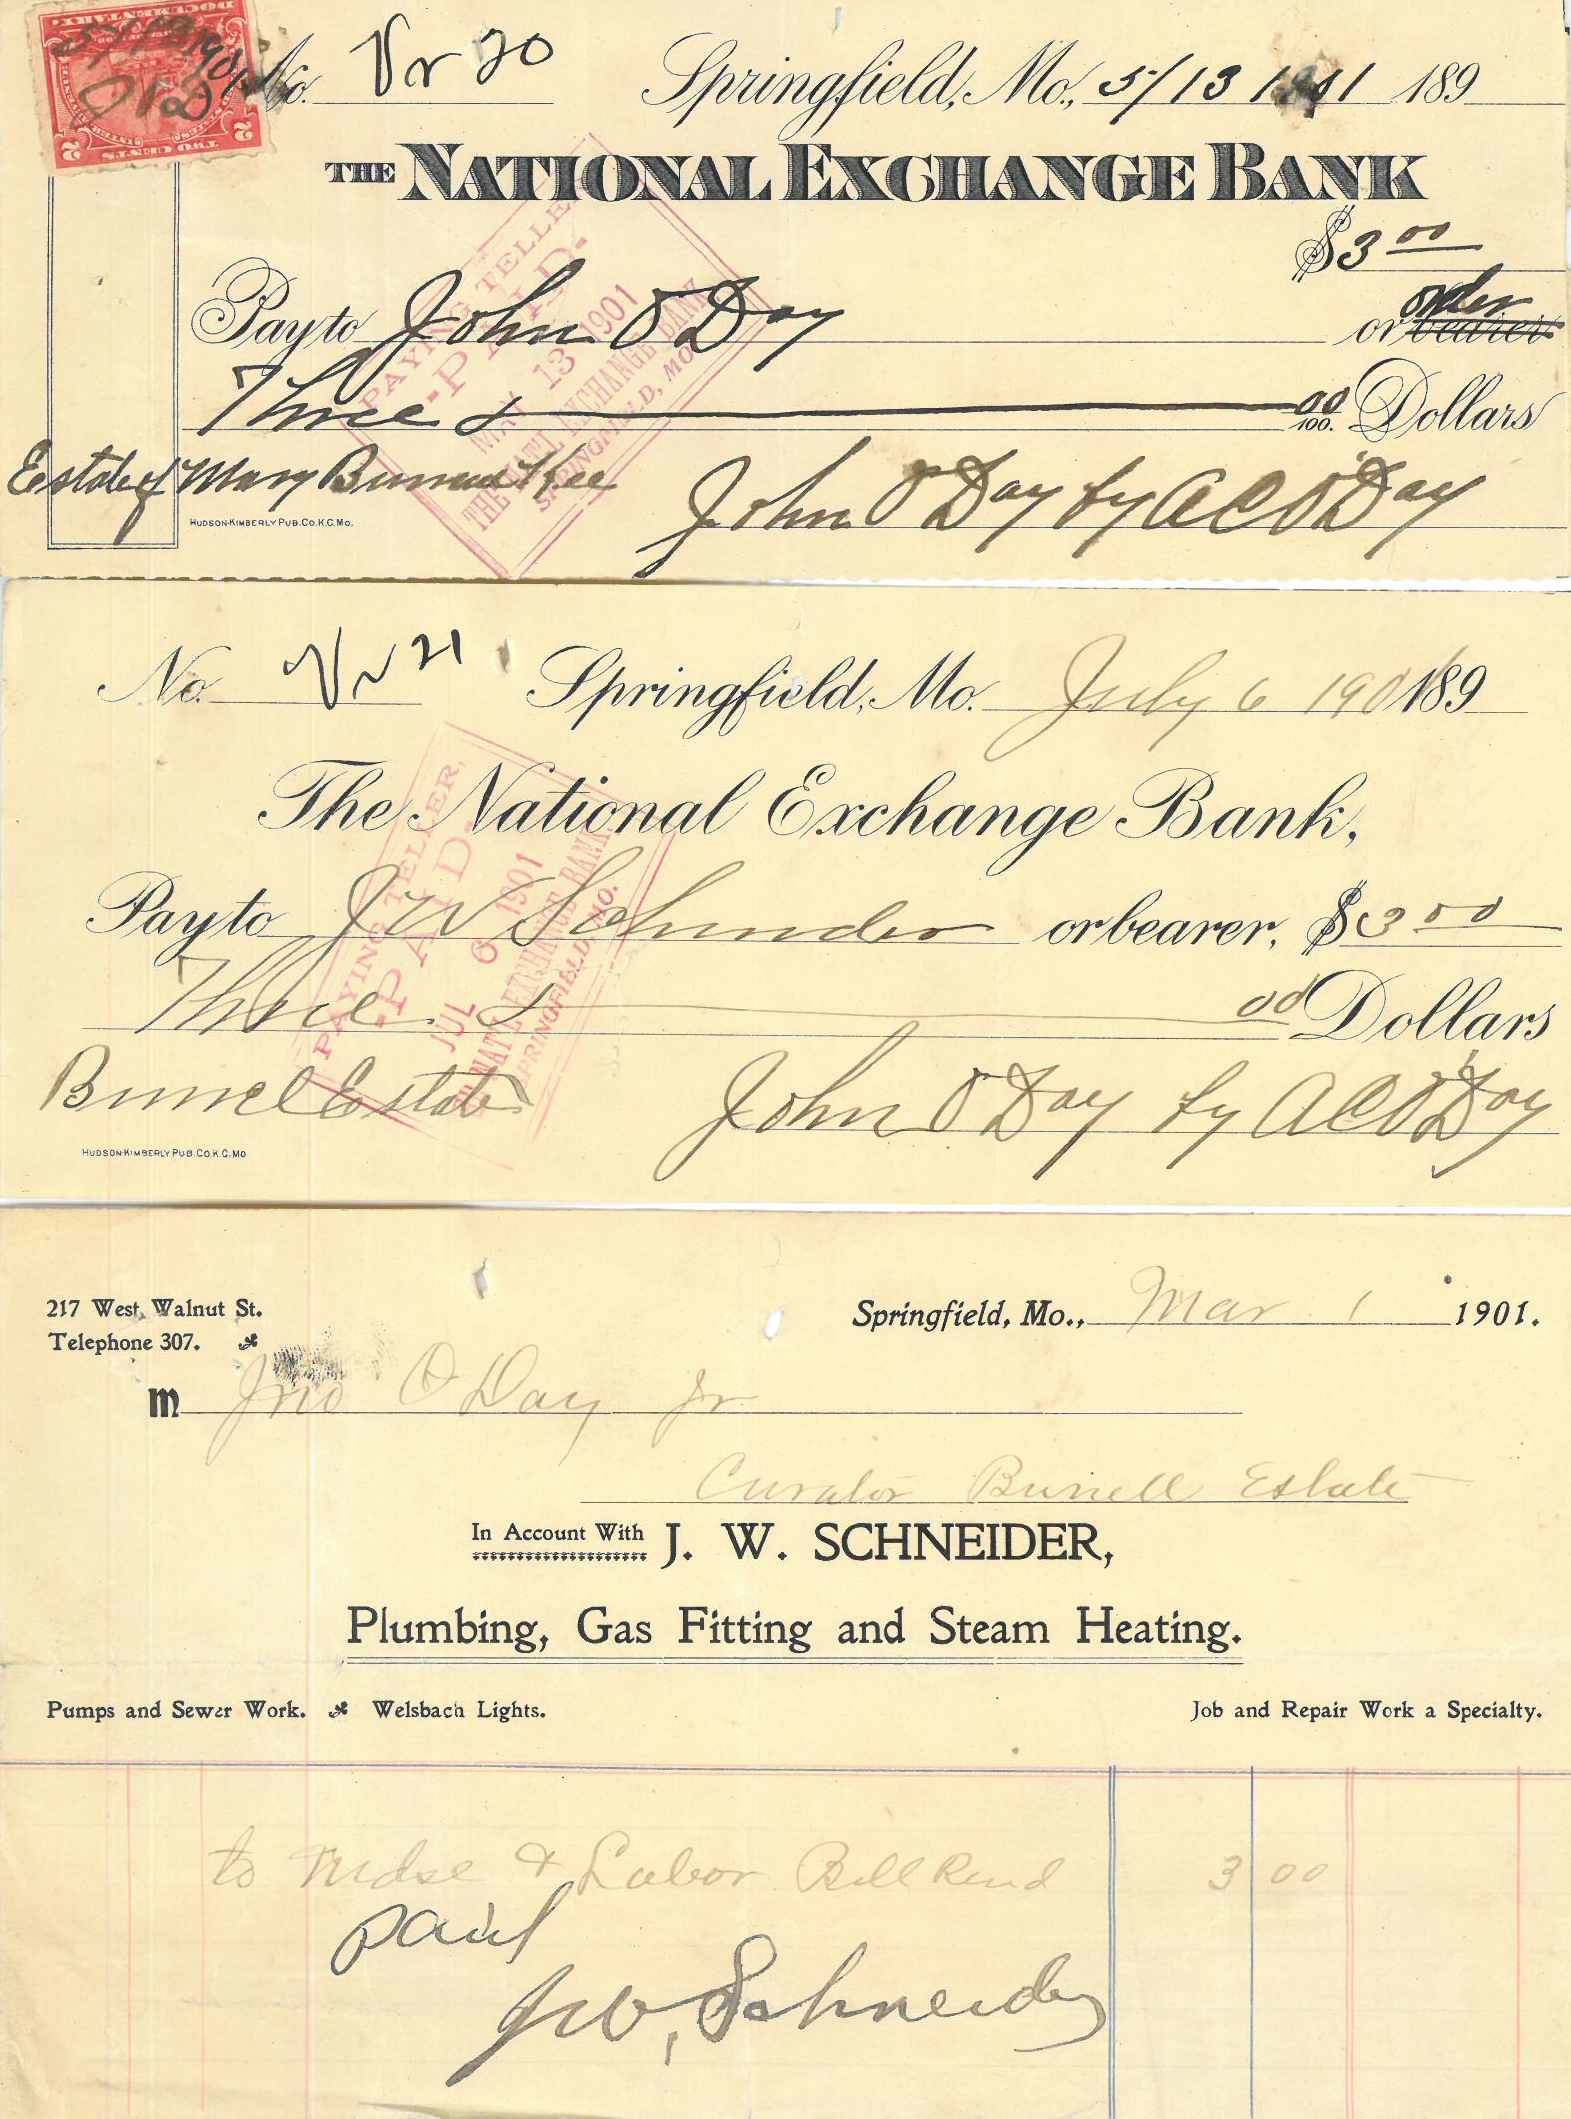 No. Vr 20 Springfield, Mo., 5/13 1901 189
THE NATIONAL EXCHANGE BANK
$3 00
Pay to John O'Day or order bearer
Three & 00/100. Dollars
Estate of Mary Kee John O'Day by A C O'Day
HUDSON-KIMBERLY PUB. CO. K.C. MO.
TWO CENTS
2 2
PAYING TELLER
-PAID-
MAY 13 1901
THE NAT'L EXCHANGE BANK
SPRINGFIELD, MO.
No. Vr 21 Springfield, Mo. July 6 1901 189
The National Exchange Bank,
Pay to J W Schnider or bearer, $3 00
Three & 00 Dollars
Burrel Estate John O'Day by A C O'Day
HUDSON-KIMBERLY PUB. CO. K.C. MO
PAYING TELLER,
-PAID-
JUL 6 1901
THE NAT'L EXCHANGE BANK,
SPRINGFIELD, MO.
217 West Walnut St. Springfield, Mo., Mar 1 1901.
Telephone 307.
M Jno O'Day Jr
Curator Burrell Estate
In Account With J. W. SCHNEIDER,
Plumbing, Gas Fitting and Steam Heating.
Pumps and Sewer Work. Welsbach Lights. Job and Repair Work a Specialty.
to Mdse & Labor Bill Rend 3 00
paid
J W, Schneider